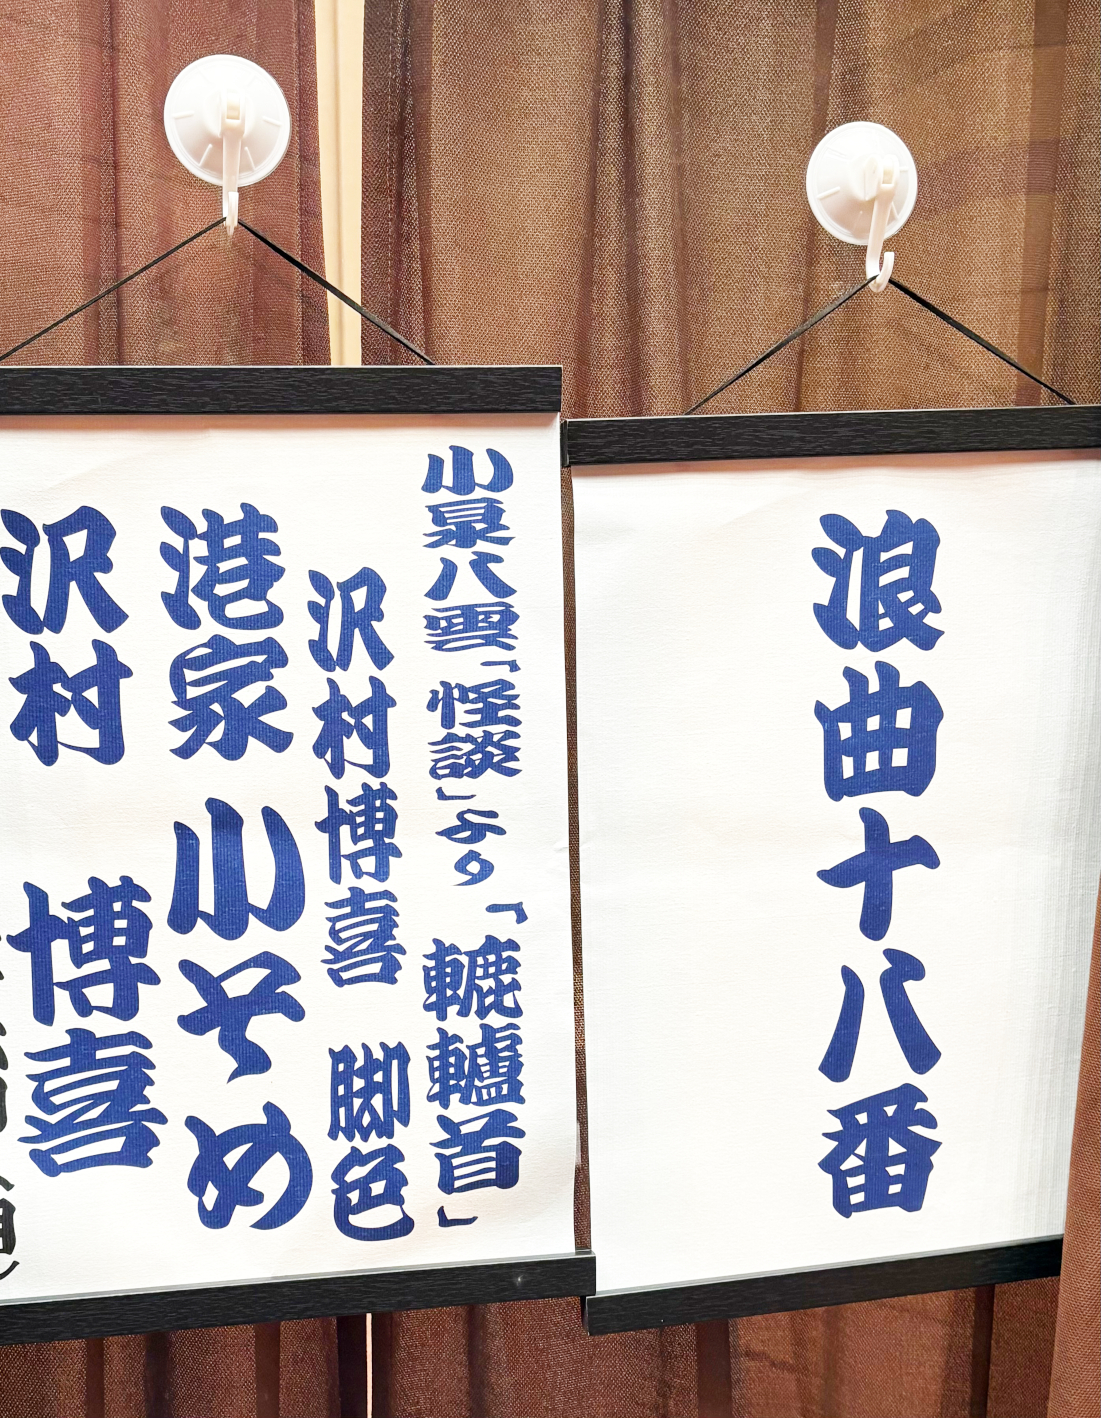 浪曲十八番
小泉八雲「怪談」より「轆轤首」
沢村博喜 脚色
港家 小そめ
沢村 博喜